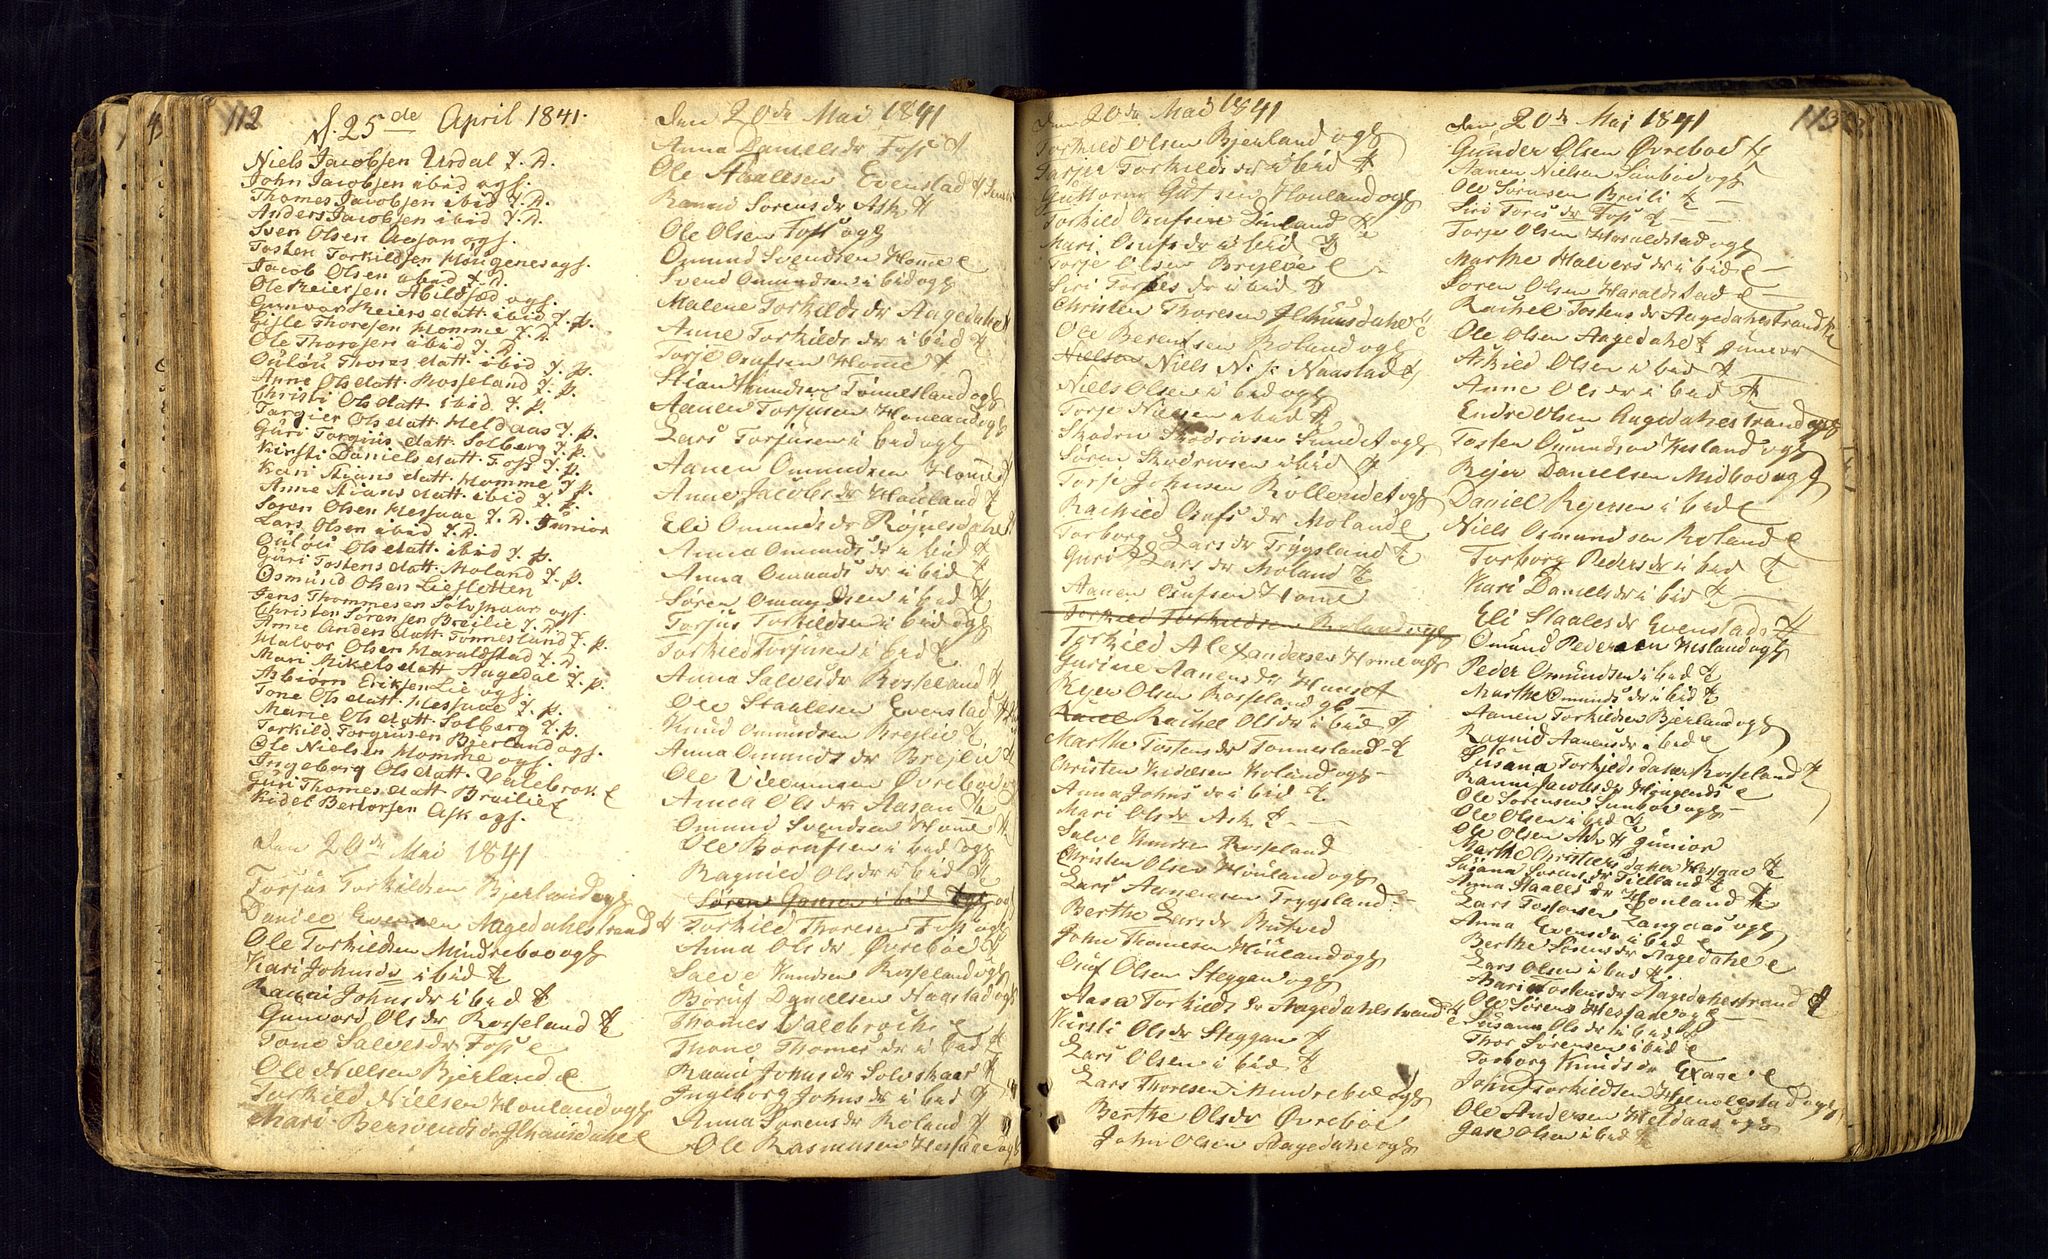 112
d. 25de April 1841.
Niels Jacobsen Urdal J. D.
John Jacobsen ibid ogs.
Thomes Jacobsen ibid J. D.
Anders Jacobsen ibid J. D.
Sven Olsen Aasan ogs.
Tosten Torkildsen Hougenes ogs.
Jacob Olsen ibid J. D.
Ole Reiersen Abildsæd ogs.
Gunvor Reiersdatt. ibid J. p.
Gisle Thoresen Homme J. D.
Ole Thoresen ibid J. D.
Oulou Thores datt ibid J. p.
Anne Olsdatt. Mosseland J. p.
Christi Olsdatt. ibid J. p.
Targier Olsdatt Heldaas J. p.
Guri Torgiusdatt. Solberg J. p.
Kirsti Daniels datt. Foss J. p.
Kari Stians datt. Homme J. p.
Anne Stians datt. ibid J. p.
Soren Olsen Hessaae J. D. Junior
Lars Olsen ibid J. D.
Oulou Olsdatt. ibid J. p.
Guri Tostens datt. Moland J. p.
Osmund Olsen Liesletten
Jens Thommesen Solvskaar ogs.
Christen Sørensen Breilie J. D.
Anne Anders datt Tonnesland J. p.
Halvor Olsen Haraldstad J. D.
Mari Mikels datt Aagedal J. p.
Asbiørn Eriksen Lie ogs.
Tone Olsdatt. Hessaae J. p.
Marie Olsdatt. Solberg J. p.
Torkild Torgiusen Bjerland ogs.
Ole Nielsen Homme ogs.
Ingeborg Olsdatt. Valebrok. E
Guri Thomesdatt. Breilie E
Kidel Berlorsen Ask ogs.
den 20de Mai 1841
Torjus Torkildsen Bjerland ogs
Daniel Evensen Aagedahlstrand
Ole Torkildsen Mindreboe ogs
Kari Johnsdr ibid
Rannei Johnsdr ibid
Gunvord Olsdr Rosseland
Tone Salvesdr Foss E
Ole Nielsen Bjerland E
Torkild Nielsen Houland ogs
Mari Bersvendsdr Ilhausdahl E
den 20de Mai 1841
Anna Danielsdr Foss
Ole Staalesen Evenstad
Ranni Sorensdr Ask
Ole Olsen Foss ogs
Omund Svendsen Home E
Svend Omundsen ibid ogs
Malene Torkildsdr Aagedahl
Anne Torkildsdr ibid
Torje Olufsen Home
Stian Tønnesland ogs
Aanen Torjusen Honeand ogs
Lars Torjusen ibid ogs
Aanen Omundsen Home
Anne Jacobsdr Houland
Eli Omundsdr Røinesdahl
Anna Omundsdr ibid
Anna Omundsdr ibid
Søren Omundsen ibid
Torjus Torkildsen ibid ogs
Torkild Torjusen ibid
Anna Salvesdr Rosseland
Ole Staalesen Evenstad
Knud Omundsen Brejlie
Anna Omundsdr Brejlie
Ole Villumsen Øvreboe ogs
Anna Olsdr Aasan
Omund Svendsen Home
Ole Borufsen ibid ogs
Ragnild Olsdr ibid
Søren Gamsen ibid ogs
Torkild Thoresen Foss ogs
Anna Olsdr Øvreboe
Salve Knudsen Rosseland ogs
Boruf Danielsen Naastad ogs
Thomes Valebrock E
Thone Thomesdr ibid
Ranni Johnsdr Solvskaar
Ingeborg Johnsdr ibid
Anna Sorensdr Roland
Ole Rasmusen Hessaae ogs
den 20de Mai 1841
Torkild Olsen Bjerland ogs
Tarjer Torkildsdr ibid
Guttorm Gutsen Houland ogs
Torkild Olufsen Linland
Mari Olufsdr ibid
Torje Olsen Brejlie E
Siri Torjesdr ibid
Christen Thoresen Ilhuusdahl
Ole Berentsen Boland ogs
Nielson Niels N. S. Naastad
Niels Olsen ibid ogs
Torje Nielsen ibid
Skodrin Skodrivsen Sundet ogs
Søren Skodrivsen ibid
Torje Johnsen Kollerudet ogs
Rachild Olufsdr Moland E
Torborg Larsdr Trygsland
Guri Larsdr Moland
Aanen Olufsen Home
Torkild Torkildsen Roland ogs
Torkild Alexandersen Home ogs
Gurine Aanensdr Haasot
Rejer Olsen Rosseland ogs
Rachel Olsdr ibid
Marthe Tostensdr Tonnesland
Christen Kidelsen Roland ogs
Anna Johnsdr ibid
Mari Olsdr Ask
Salve Knudsen Rosseland
Christen Olsen Houland ogs
Lars Aanensen Trygsland
Berthe Larsdr Butved
John Thomesen Houland ogs
Oluf Olsen Steggan ogs
Aasa Torkildsdr Aagedahlstrand
Kirsti Olsdr Steggan
Lars Olsen ibid
Lars Thoresen Mindreboe ogs
Berthe Olsdr Øvreboe
John Olsen Aagedahl ogs
113
den 20de Mai 1841
Gunder Olsen Øvreboe
Aanen Nielsen Sunboe ogs
Ole Sørensen Breili
Siri Toresdr Foss
Torje Olsen Haraldstad ogs
Marthe Halversdr ibid E
Soren Olsen Haraldstad E
Rachel Tostensdr Aagedahlstrand
Ole Olsen Aagedahl Junior
Askild Olsen ibid
Anne Olsdr ibid
Endre Olsen Aagedahlstrand ogs
Tosten Omundsen Kisland ogs
Rejer Danielsen Midboe ogs
Daniel Rejersen ibid E
Niels Osmundsen Roland E
Torborg Pedersdr ibid
Kari Danielsdr ibid
Eli Staalesdr Evenstad
Omund Pedersen Kisland ogs
Peder Omundsen ibid
Marthe Omundsdr ibid
Aanen Torkildsen Bjerland ogs
Ragnid Aanensdr ibid E
Susana Torkildsdater Rosseland
Ranni Jacobsdr Houglands E
Ole Sorensen Sunboe ogs
Ole Olsen ibid
Ole Olsen Ask Junior
Marthe Christensdater Hessaae
Susana Sorensdr Fielland
Anna Staalesdr Honland
Lars Tostensen Langaas ogs
Anna Evensdr ibid E
Berthe Sørensdr Aagedahl E
Lars Olsen ibid
Mari Tostensdr Aagedahlstrand
Ole Sørensen Hessaae ogs
Susanna Olsdr ibid
Thor Sørensen ibid E
Torborg Knudsdr E
John Torkildsen ogs
Ole Andersen Heldaas ogs
Olsen ibid